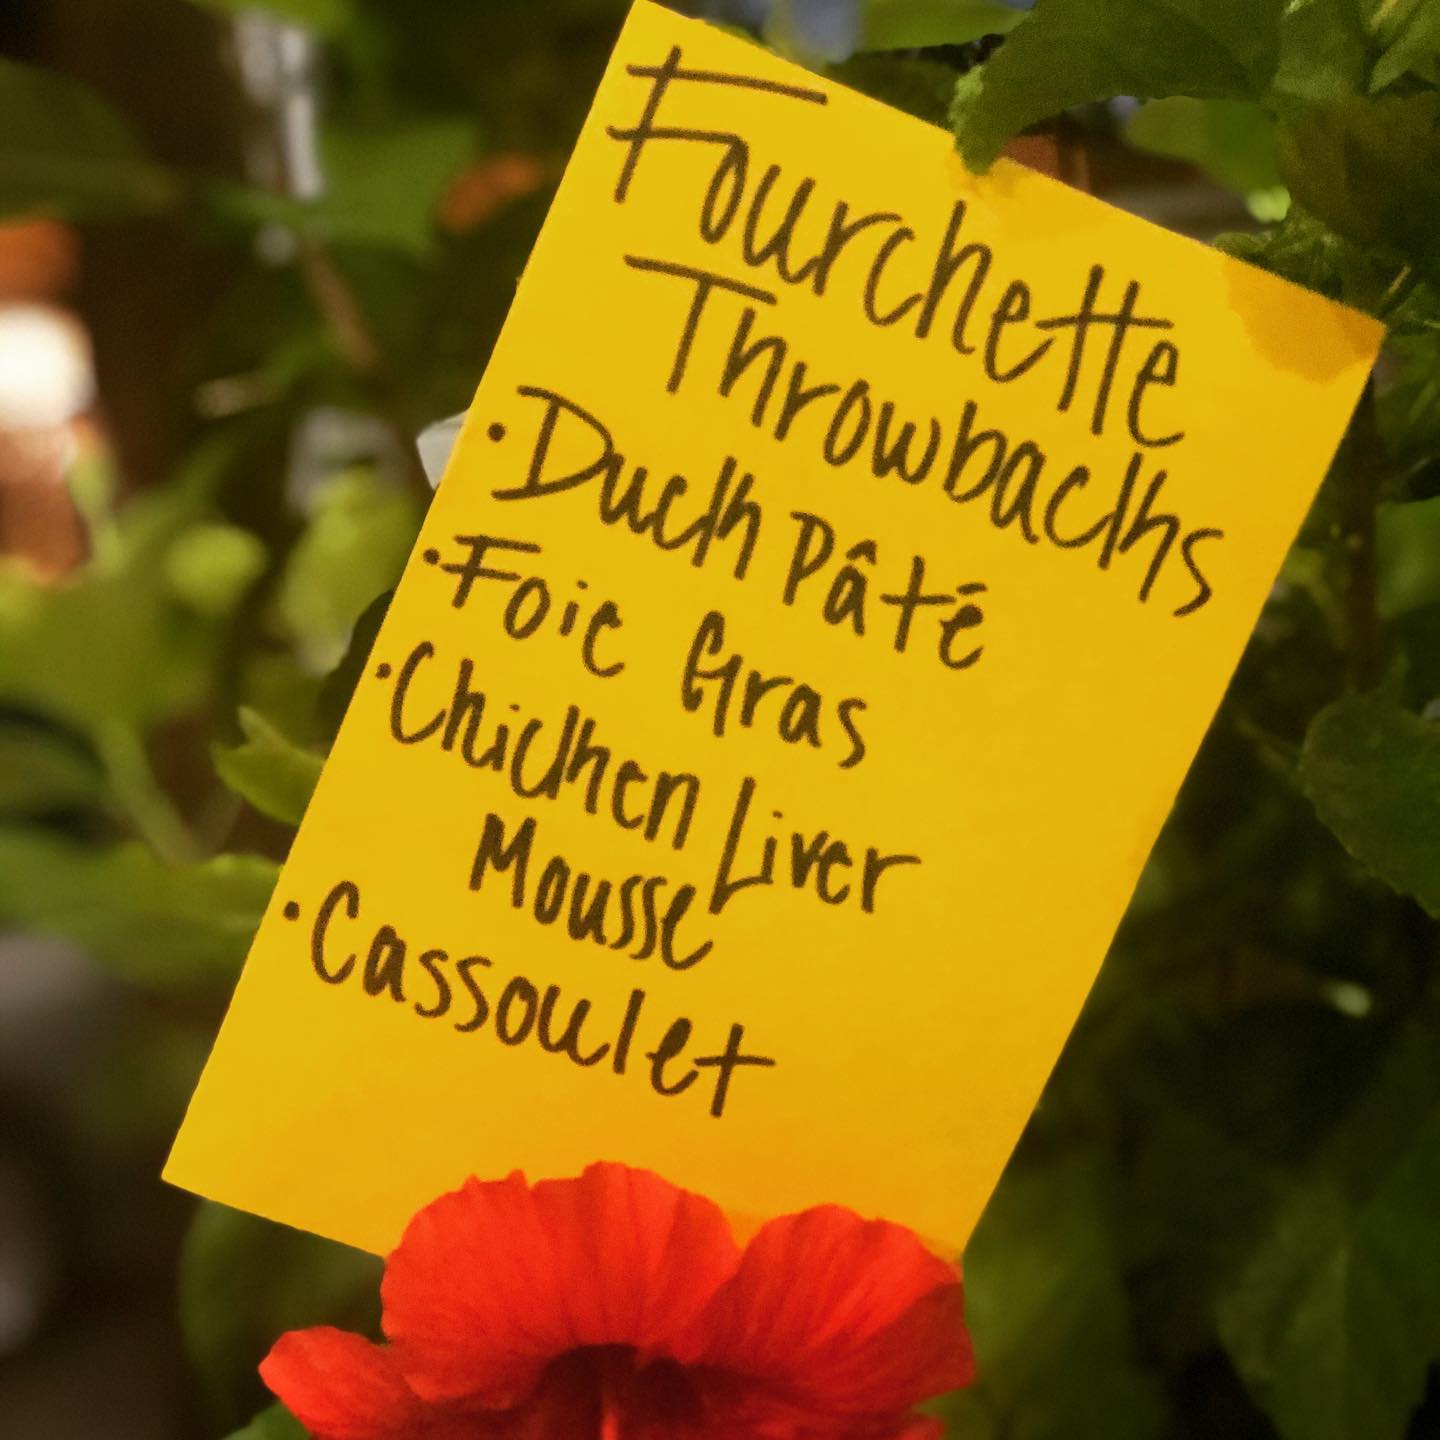 Fourchette
Throwbacks
· Duck Pâté
· Foie Gras
· Chicken Liver
Mousse
· Cassoulet